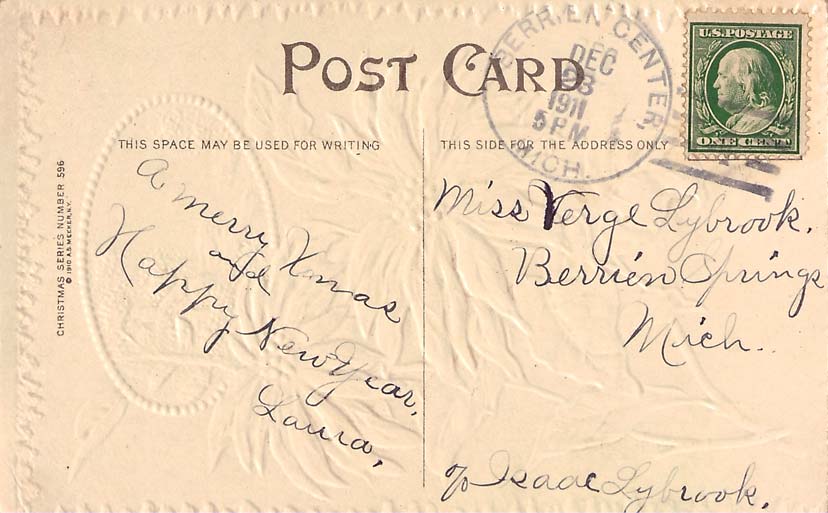 POST CARD
BERRIEN CENTER,
MICH.
DEC
23
1911
5 PM
U.S. POSTAGE
ONE CENT
THIS SPACE MAY BE USED FOR WRITING
THIS SIDE FOR THE ADDRESS ONLY
CHRISTMAS SERIES NUMBER 596
© 1910 A.S. MEEKER, N.Y.
A Merry Xmas
and
Happy New Year,
Laura,
Miss Verge Lybrook,
Berrien Springs
Mich.
c/o Isaac Lybrook,